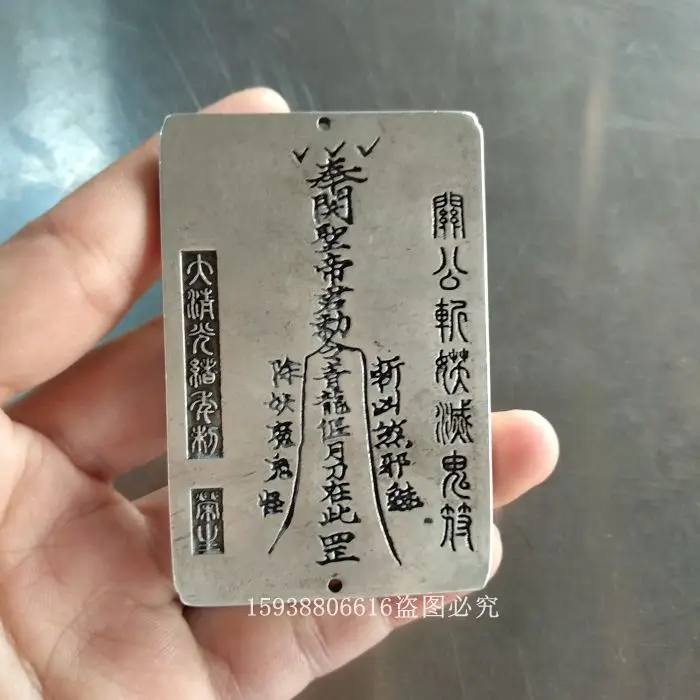 關公斬妖滅鬼符
奉関聖帝君勅令青龍偃月刀在此罡
斬凶煞邪魅
除妖魔鬼怪
大清光緒年制
榮生
15938806616盗图必究